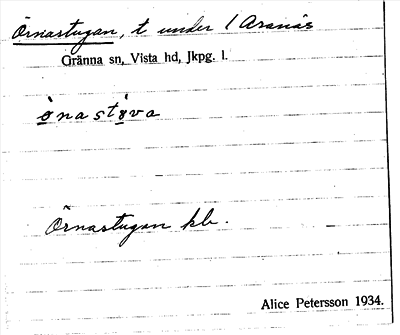 Örnastugan, t under 1 Aranäs
Gränna sn, Vista hd, Jkpg. l.
ò̱nastø̱̀va
Örnastugan kb.
Alice Petersson 1934.